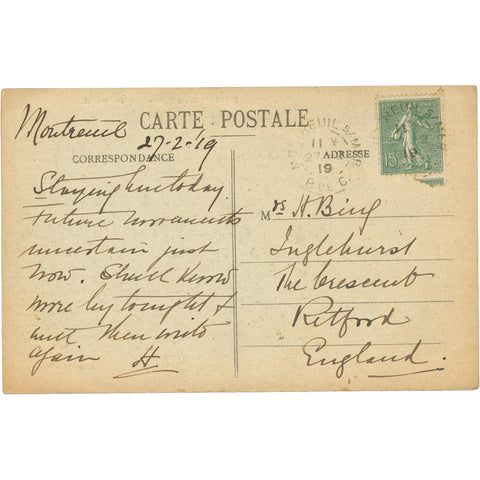 CARTE POSTALE
Montreuil
27-2-19
CORRESPONDANCE
ADRESSE
Staying here today.
Future movements
uncertain just
now. Shall know
more by tonight &
will then write
again
H
Mrs H. Bing
Inglehurst
The Crescent
Retford
England.
MONTREUIL S/MER
11
27
19
15